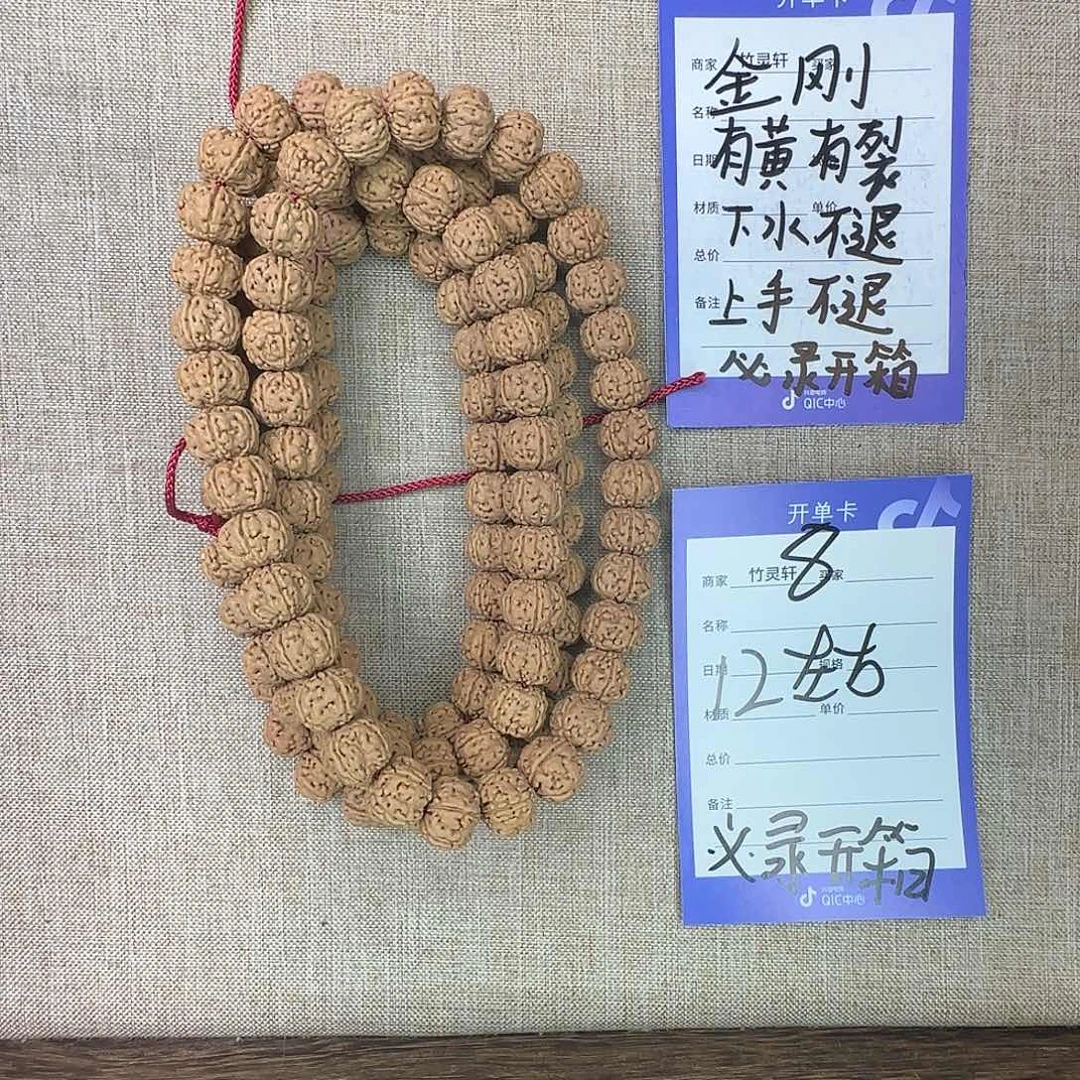 开单卡
商家 竹灵轩 买家
金刚
名称
有黄有裂
日期
材质 单价
下水不退
总价
备注
上手不退
必录开箱
抖音电商
QIC中心
开单卡
8
商家 竹灵轩 买家
名称
日期 规格
12左右
材质 单价
总价
备注
必录开箱
抖音电商
QIC中心